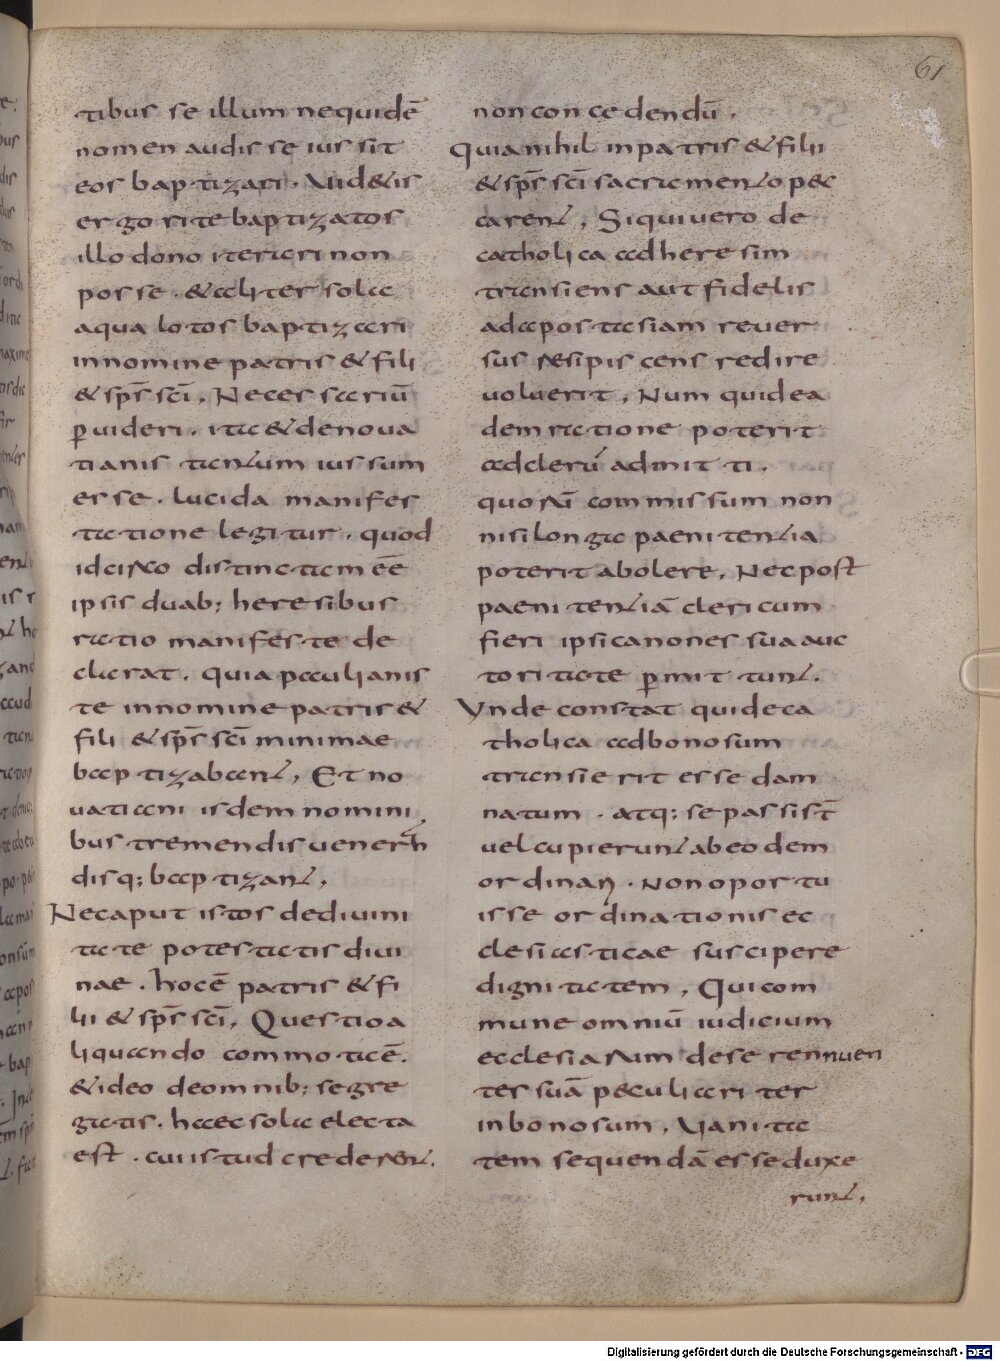 61
tibus se illum nequidē
nomen audisse ius sit
eos baptizari. Aud&is
ergo rite baptizatos
illo dono iterari non
posse. &aliter sola
aqua lotos baptizari
innomine patris & fili
& sp̄s sc̄i. Necessariū
ꝑuideri. ita & denoua
tianis tantum iussum
esse. lucida manifes
tatione legitur. quod
idcirco distinctam eē
ipsis duab; heresibus
ratio manifeste de
clarat. quia paulianis
te innomine patris &
fili & sp̄s sc̄i minimae
baptizabant. Et no
uatiani isdem nomini
bus tremendis uenerāń
disq; baptizant.
Necaput istos dediuini
tate potestatis diui
nae. hocē patris & fi
lii & sp̄s sc̄i. Questio a
liquando commota ē.
& ideo deomnib; segre
gatis. haec sola electa
est. cui istud crederent.
non concedendū.
Quia nihil in patris & filii
& sp̄s sc̄i sacramento pec
carent. Siqui uero de
catholica ad heresim
transiens aut fidelis
ad apostasiam reuer
sus resipiscens redire
uoluerit. Num quidea
dem ratione poterit
ad clerū admitti.
quorū commissum non
nisi longa paenitentia
poterit abolere. Nec post
paenitentiā clericum
fieri ipsi canones sua auc
toritate ꝑmittunt.
Vnde constat qui de ca
tholica ad bonosum
transierit esse dam
natum. atq; se passist̄
uel cupierunt ab eodem
ordinari. Non oportu
isse ordinationis ec
clesiasticae suscipere
dignitatem. Qui com
mune omniū iudicium
ecclesiarum deserennuen
ter suā peculiariter
in bonosum. Vanita
tem sequendā esse duxe
runt.
Digitalisierung gefördert durch die Deutsche Forschungsgemeinschaft - DFG